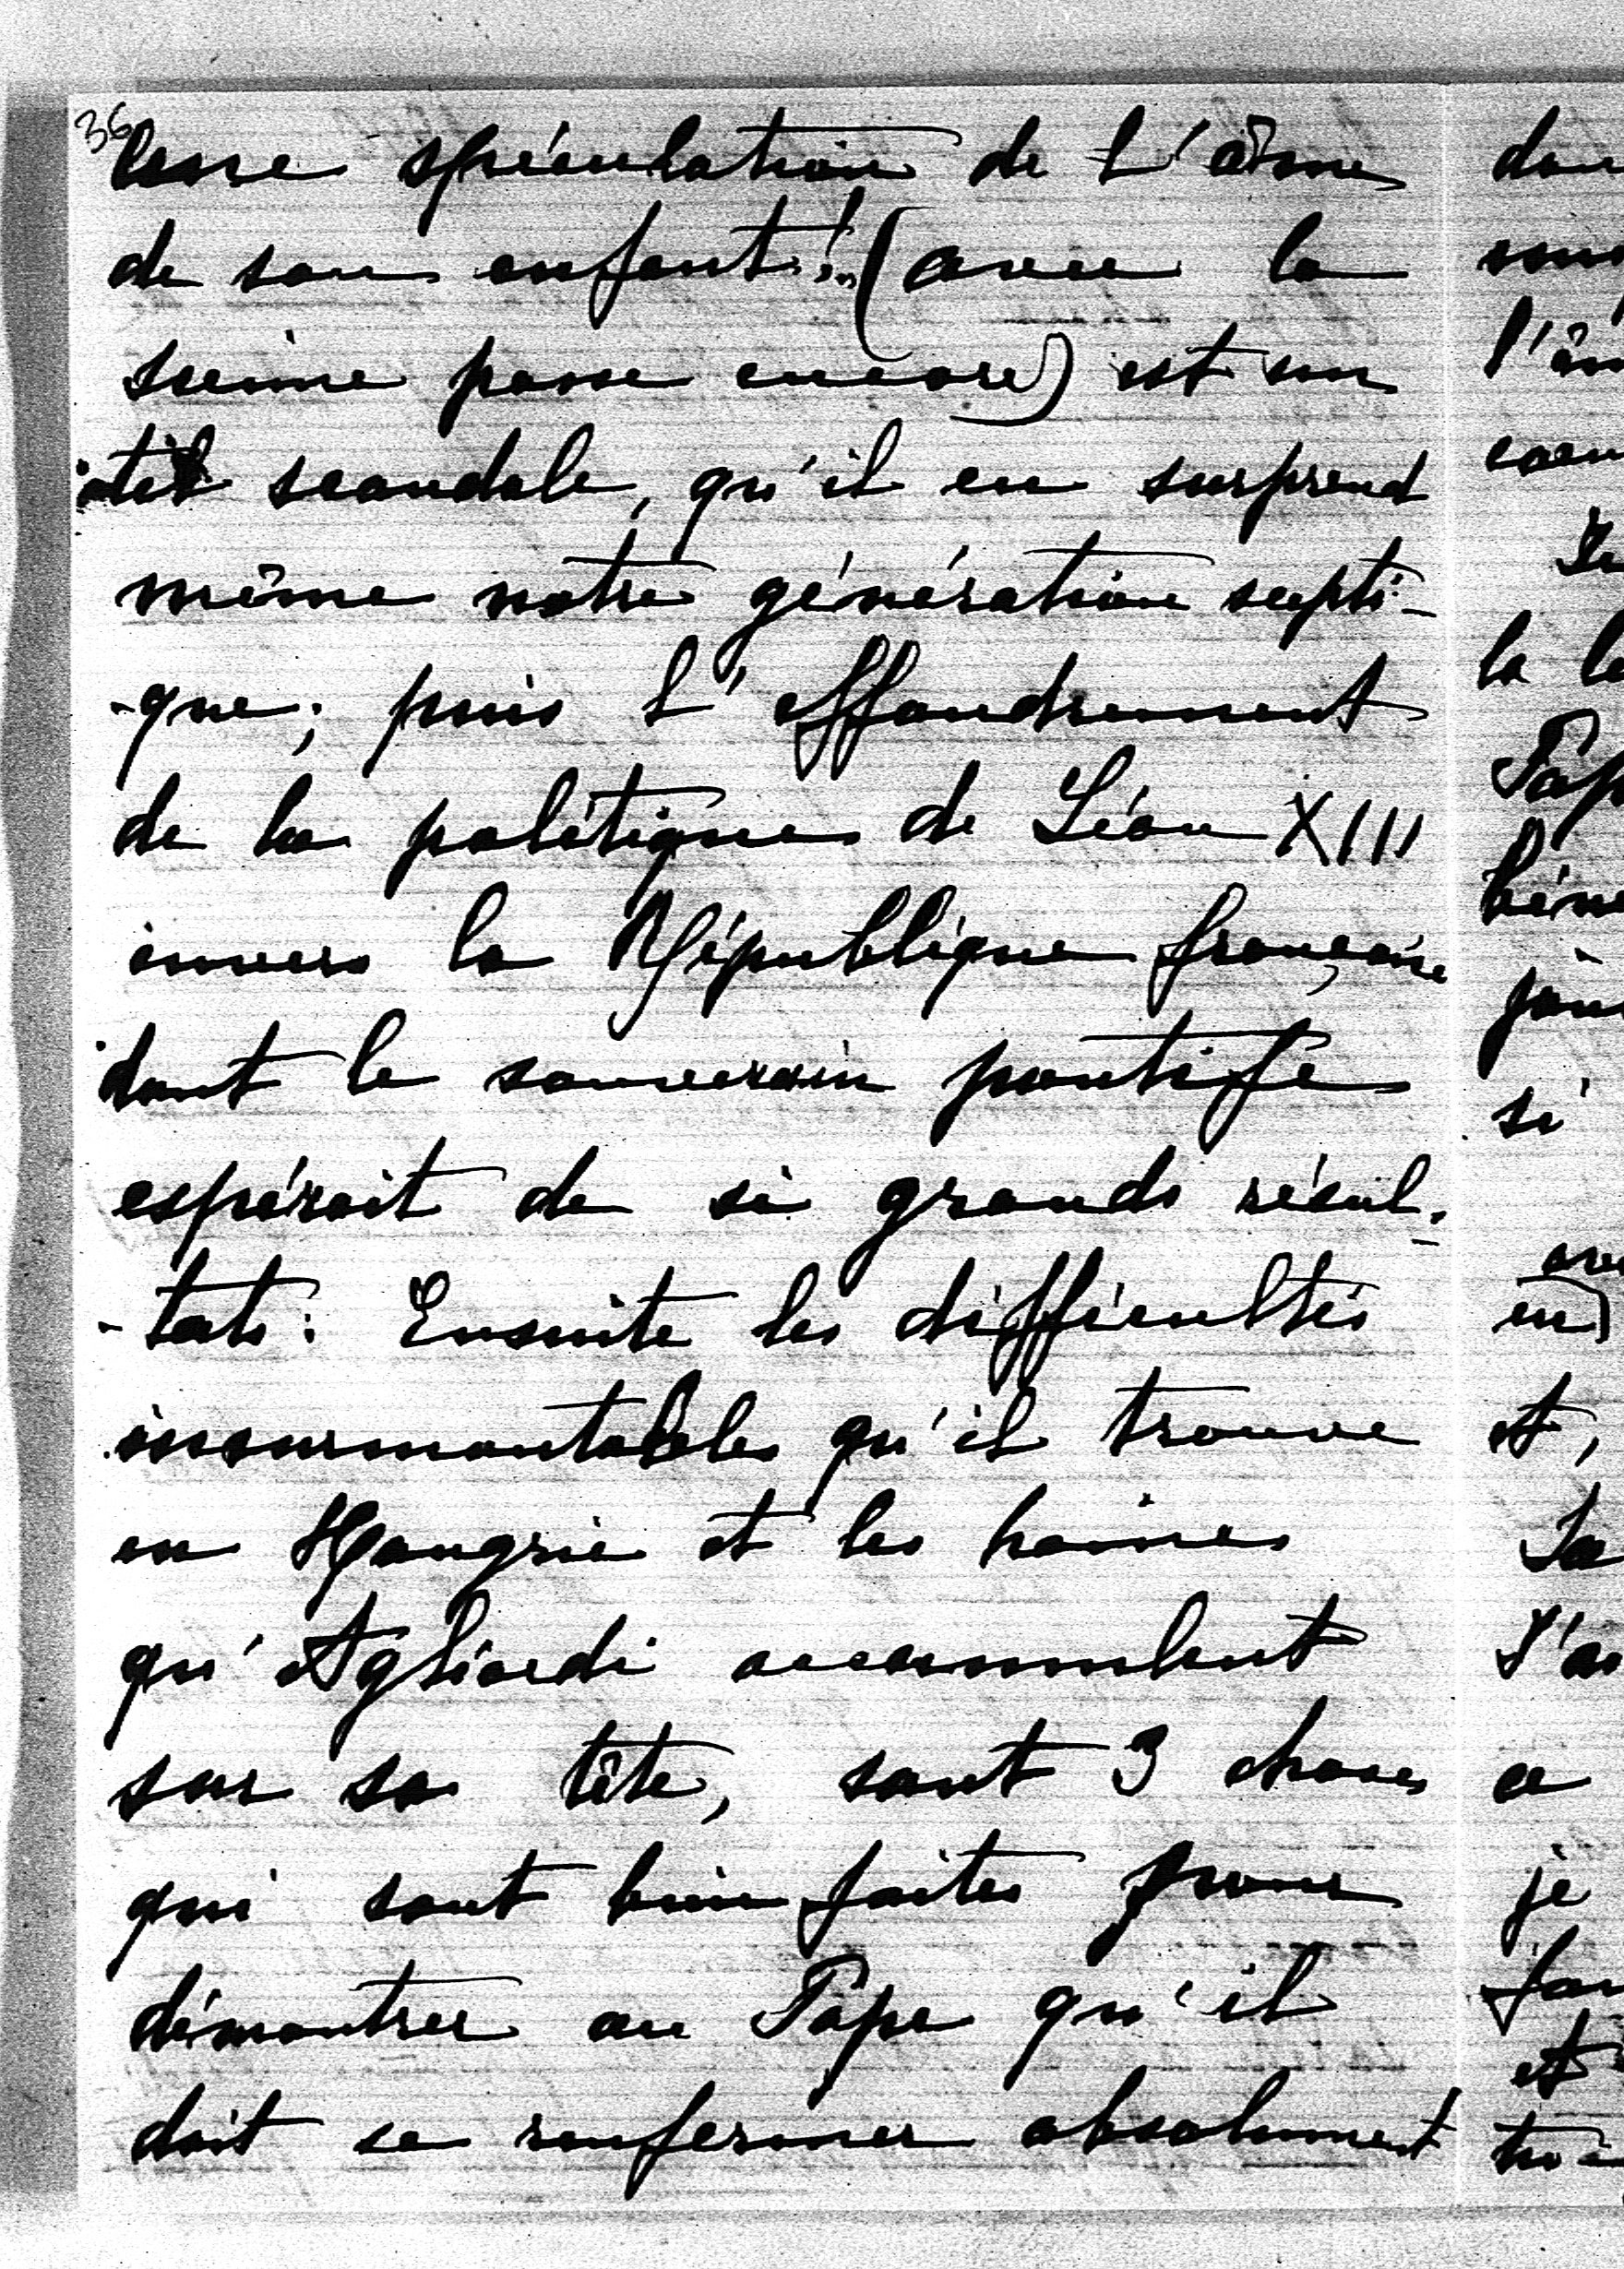 36
cune spéculation de l'âme
de son enfant!..(avec la
sienne passe encore) est un
tel scandale, qu'il en surprend
même notre génération scepti-
-que; puis l'effondrement
de la politique de Léon XIII
envers la République française
dont le souverain pontife
espérait de si grands résul-
-tats: Ensuite les difficultés
insurmontables qu'il trouve
en Hongrie et les haines
qu'Agliardi accumulent
sur sa tête, sont 3 choses
qui sont bien faites pour
démontrer au Pape qu'il
doit se renfermer absolument